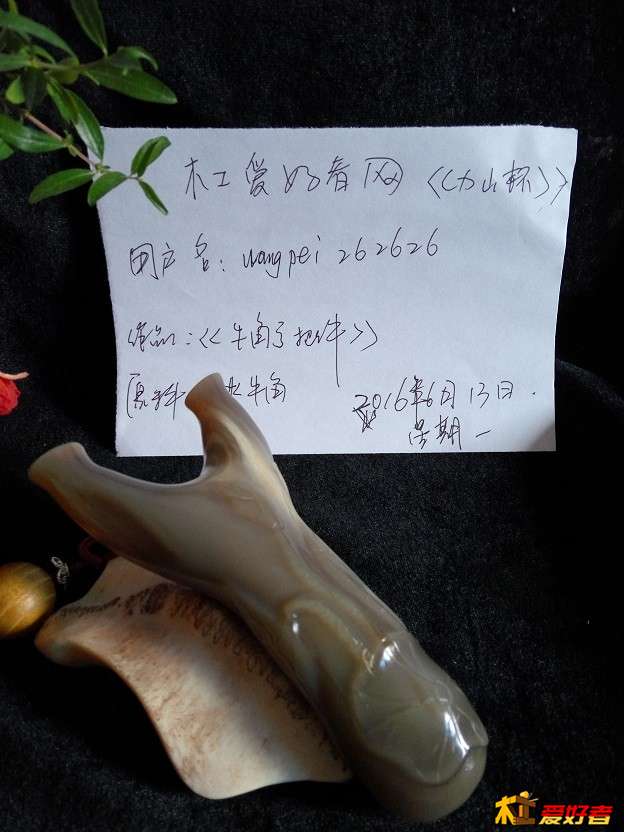 木工爱好者网《力山杯》
用户名: wangpei 262626
作品:《牛角弓把件》
原料 水牛角
2016年6月13日.
星期一
木工爱好者